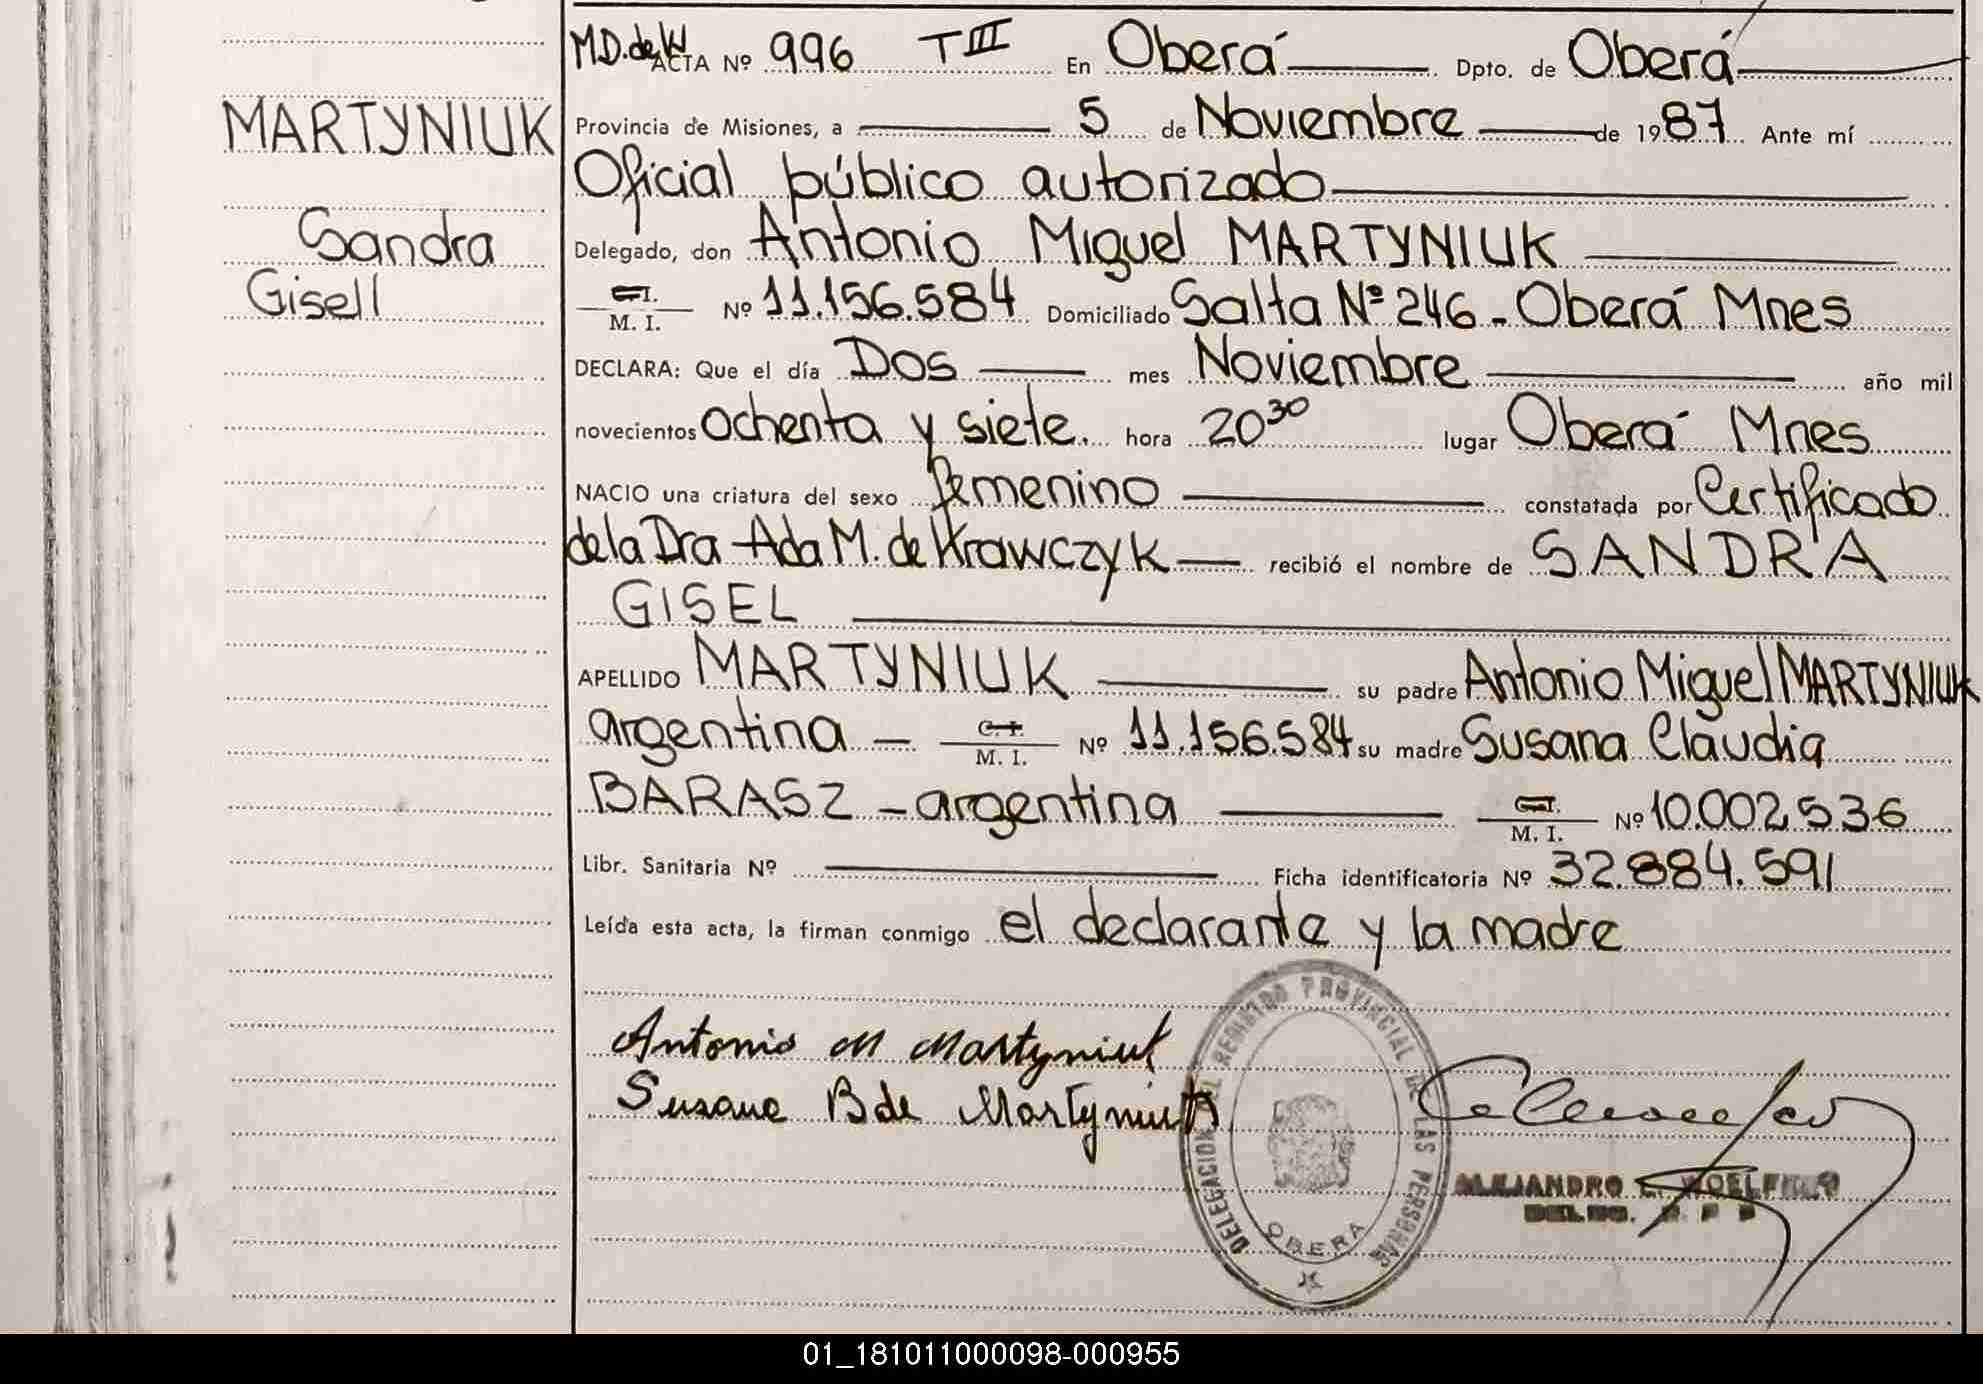 MARTYNIUK
Sandra
Gisell
M.D. de K ACTA Nº 996 T III En Oberá Dpto. de Oberá
Provincia de Misiones, a 5 de Noviembre de 1987 Ante mí
Oficial público autorizado
Delegado, don Antonio Miguel MARTYNIUK
C.I. M. I. Nº 11.156.584 Domiciliado Salta Nº 246 - Oberá Mnes
DECLARA: Que el día Dos mes Noviembre año mil
novecientos ochenta y siete. hora 20 30 lugar Oberá Mnes
NACIO una criatura del sexo femenino constatada por Certificado
de la Dra Ada M. de Krawczyk recibió el nombre de SANDRA
GISEL
APELLIDO MARTYNIUK su padre Antonio Miguel MARTYNIUK
argentina - C.I. M. I. Nº 11.156.584 su madre Susana Claudia
BARASZ - argentina C.I. M. I. Nº 10.002.536
Libr. Sanitaria Nº Ficha identificatoria Nº 32.884.591
Leída esta acta, la firman conmigo el declarante y la madre
Antonio M Martyniuk
Susana B de Martyniuk
DELEGACION DEL REGISTRO PROVINCIAL DE LAS PERSONAS
OBERA
ALEJANDRO
01_181011000098-000955